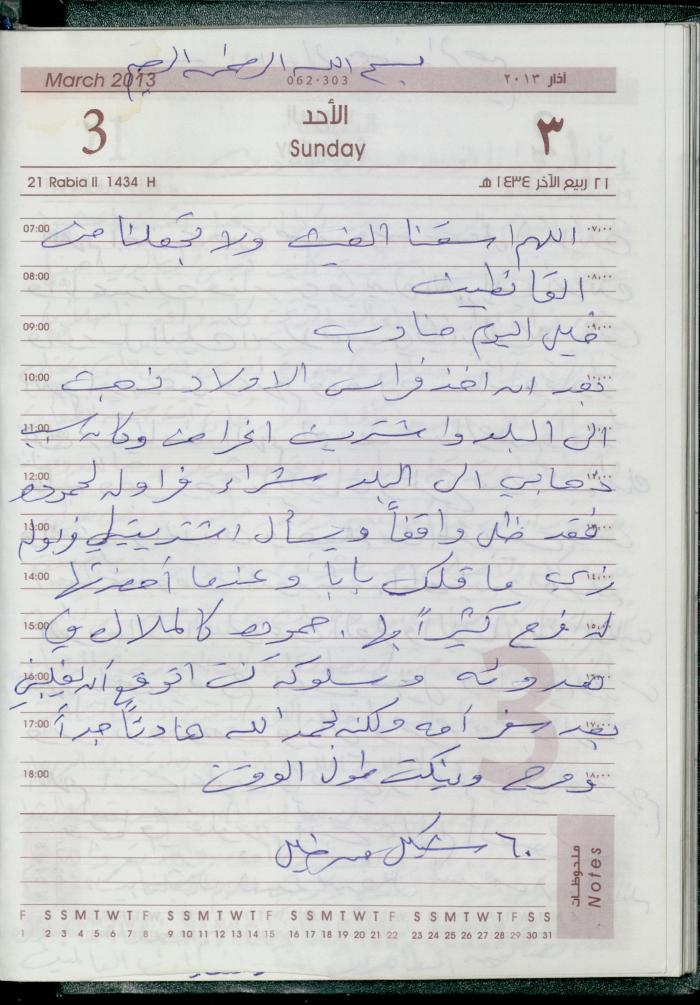 بسم الله الرحمن الرحيم
March 2013 062-303 آذار ٢٠١٣
3 الأحد ٣
Sunday
21 Rabia II 1434 H ٢١ ربيع الآخر ١٤٣٤ هـ
07:00 اللهم اسقنا الغيث ولا تجعلنا من ٠٧:٠٠
08:00 القانطين ٠٨:٠٠
09:00 خليل اليوم مناوب ٠٩:٠٠
10:00 بعد ان اخذ فراس الاولاد ذهبت ١٠:٠٠
11:00 الى البلد واشتريت اغراض وكان سبب
12:00 ذهابي الى البلد شراء فراوله لحموده ١٢:٠٠
13:00 فقد ظل واقفاً ويسأل اشتريتيلي فروله
14:00 زي ما قلك بابا وعندما أحضرتها ١٤:٠٠
15:00 له فرح كثيراً بها. حموده كالملاك في ١٥:٠٠
16:00 هدوئه وسلوكه كنت اتوقع أن يغلبني ١٦:٠٠
17:00 بعد سفر أمه ولكنه الحمد لله هادئاً جداً ١٧:٠٠
18:00 ومرح وينكت طول الوقت ١٨:٠٠
٦٠ شيكل من خليل
ملحوظات
Notes
F S S M T W T F S S M T W T F S S M T W T F S S M T W T F S S
1 2 3 4 5 6 7 8 9 10 11 12 13 14 15 16 17 18 19 20 21 22 23 24 25 26 27 28 29 30 31